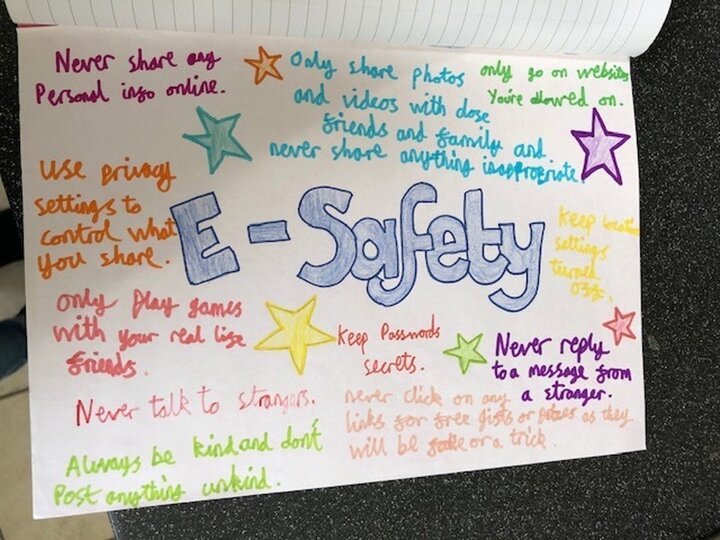 Never share any
Personal info online.
Only share photos
and videos with close
friends and family and
never share anything inappropriate.
only go on websites
You're allowed on.
Use privacy
settings to
control what
you share.
E-Safety
Keep location
settings
turned
off.
Only play games
with your real life
friends.
Keep Passwords
secrets.
Never reply
to a message from
a stranger.
Never talk to strangers.
never click on any
links for free gifts or as they
will be fake or a trick.
Always be kind and don't
Post anything unkind.